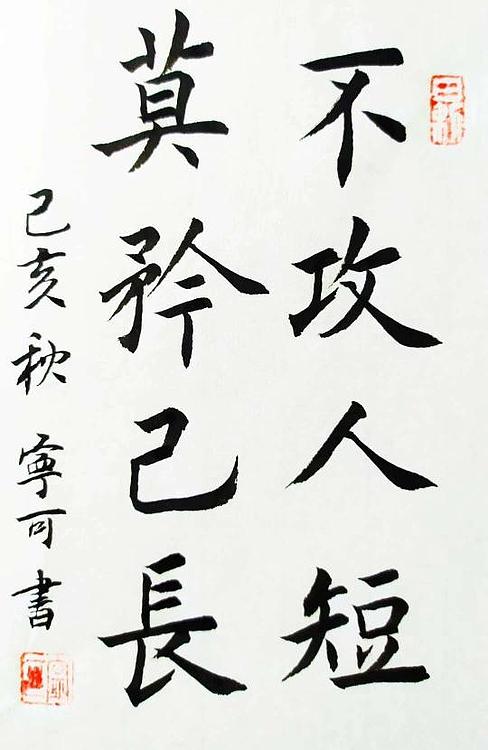 不攻人短
莫矜己長
己亥秋 寧可書